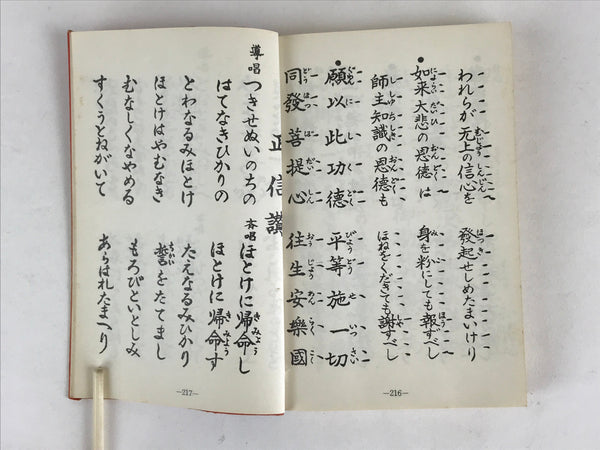 われらが 无上の信心を 發起せしめたまいけり
如来大悲の恩徳は 身を粉にしても報ずべし
師主知識の恩徳も ほねをくだきても謝すべし
願以此功徳 平等施一切
同發菩提心 往生安樂國
—216—
正信讃
導唱 つきせぬいのちの 斉唱 ほとけに歸命し
はてなきひかりの ほとけに歸命す
とわなるみほとけ たえなるみひかり
ほとけはやむなき 誓をたてまし
むなしくなやめる もろびといとしみ
すくうとねがいて あらはれたまへり
—217—